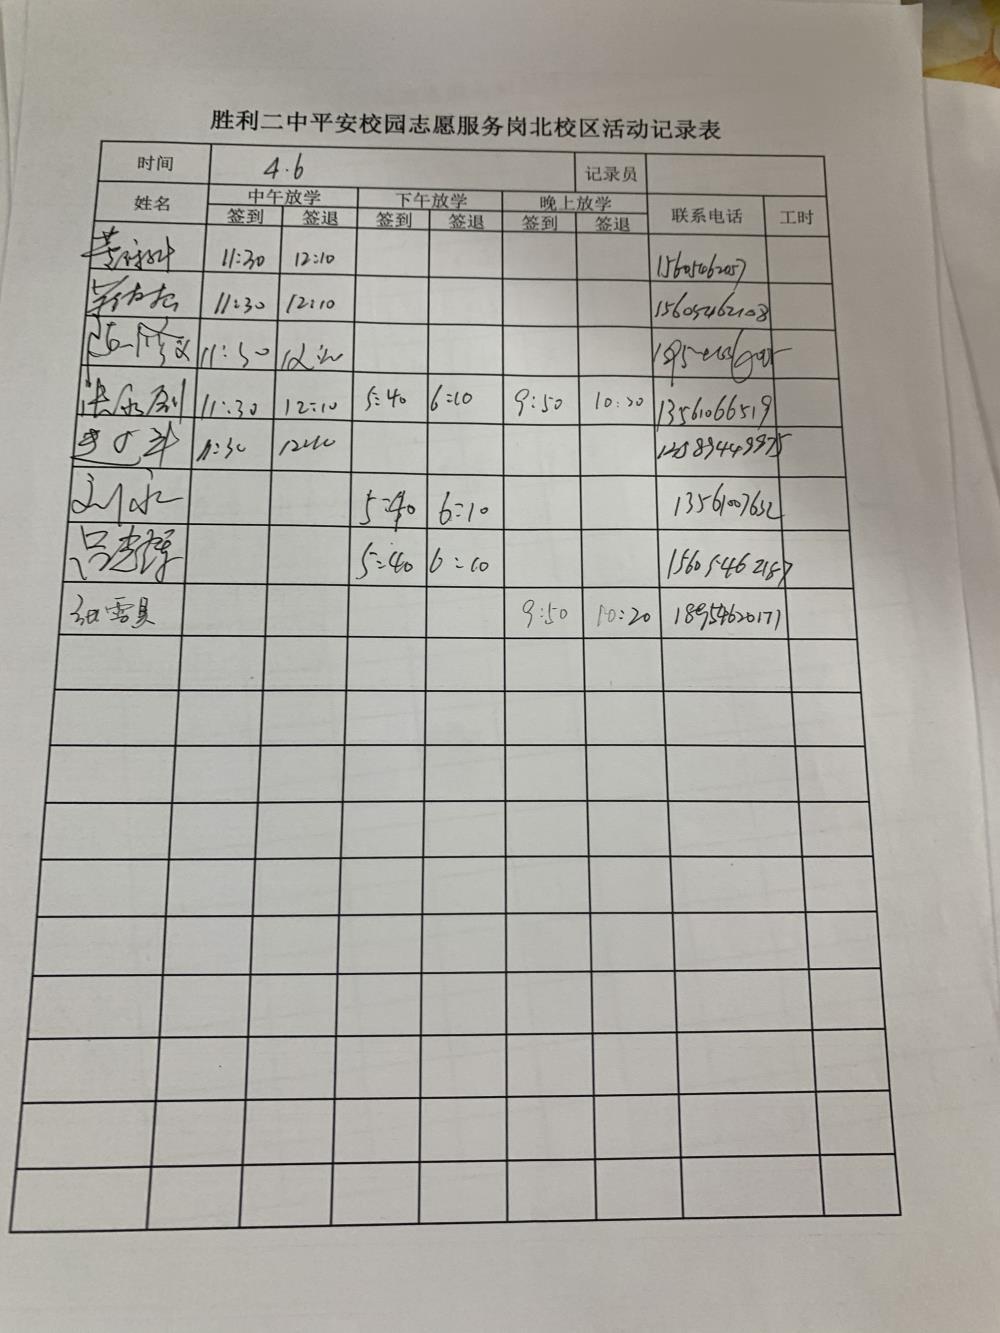 胜利二中平安校园志愿服务岗北校区活动记录表
时间 4.6 记录员
姓名 中午放学 下午放学 晚上放学 联系电话 工时
签到 签退 签到 签退 签到 签退
11:30 12:10 15605462057
11:30 12:10 15605462108
11:30
张永刚 11:30 12:10 5:40 6:10 9:50 10:20 13561066519
11:30 12:10
刘永 5:40 6:10 13561007632
吕志强 5:40 6:10 15605462187
9:50 10:20 18954620171